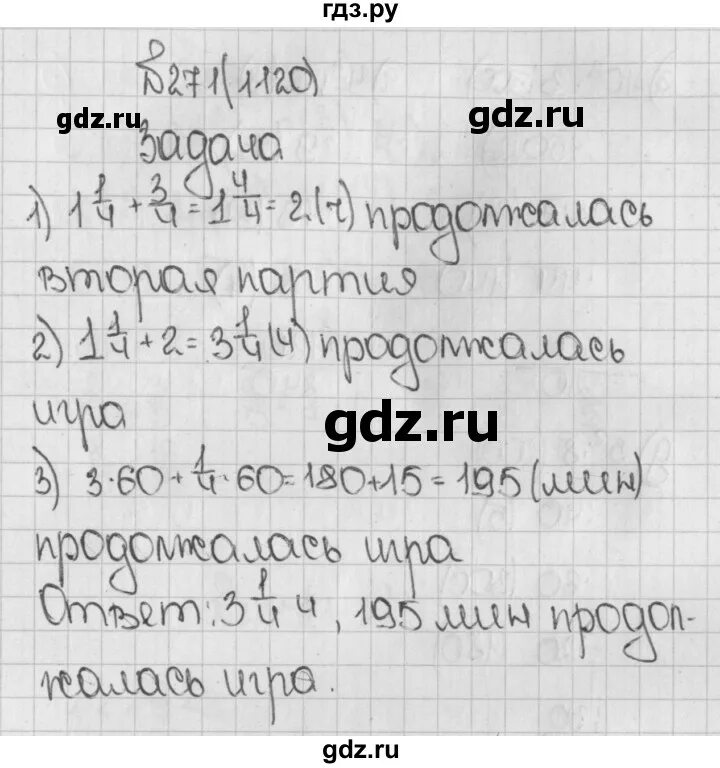 гдз.ру
№271(1120)
gdz.ru
gdz.ru
Задача
1) 1 1/4 + 3/4 = 1 4/4 = 2.(ч) продолжалась
вторая партия
2) 1 1/4 + 2 = 3 1/4 (ч) продолжалась
игра
gdz.ru
3) 3·60 + 1/4·60 = 180+15 = 195 (мин)
продолжалась игра
Ответ: 3 1/4 ч, 195 мин продол-
жалась игра.
gdz.ru